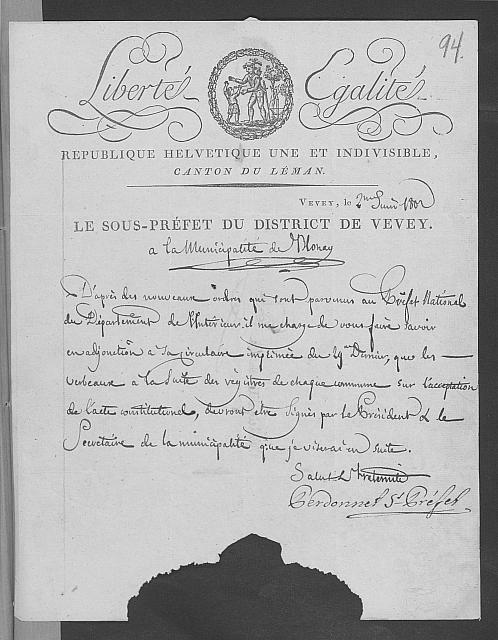 94.
Liberté Egalité
REPUBLIQUE HELVETIQUE UNE ET INDIVISIBLE,
CANTON DU LÉMAN.
VEVEY, le 2me Juin 1802
LE SOUS-PRÉFET DU DISTRICT DE VEVEY.
a la Municipalité de Blonay
D'après des nouveaux ordres qui sont parvenus au Préfet National
du Département de l'Interieur, il me charge de vous faire savoir
en adjonction à sa circulaire imprimée du que les
verbeaux à la suite des registres de chaque commune sur l'acceptation
de l'acte constitutionel, devront etre signés par le Président & le
Secretaire de la municipalité que je viserai en suite.
Salut & Fraternité
Perdonnet Ss Préfet